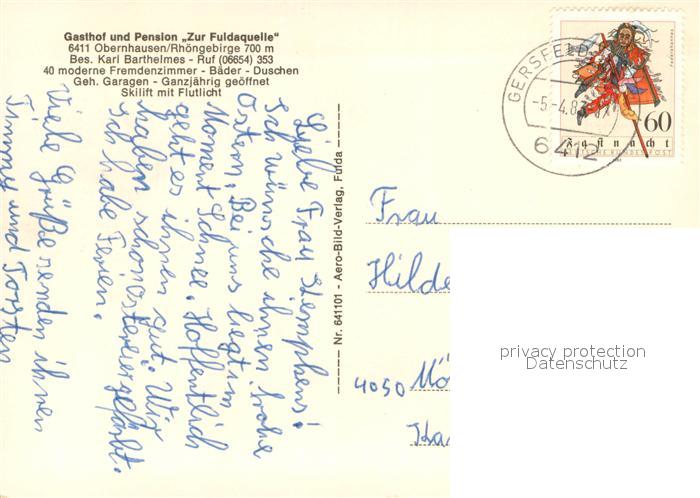 Gasthof und Pension „Zur Fuldaquelle“
6411 Obernhausen/Rhöngebirge 700 m
Bes. Karl Barthelmes - Ruf (06654) 353
40 moderne Fremdenzimmer - Bäder - Duschen
Geh. Garagen - Ganzjährig geöffnet
Skilift mit Flutlicht
Liebe Frau Stemphens!
Ich wünsche ihnen frohe
Ostern. Bei uns liegt im
Moment Schnee. Hoffentlich
geht es ihnen gut. Wir
haben schon Ostereier gefärbt.
Ich habe Ferien.
Viele Grüße senden ihnen
Timmy und Torsten
Nr. 641101 - Aero-Bild-Verlag, Fulda
GERSFELD
-5-4.83
6412
Federahannes
60
Fastnacht
DEUTSCHE BUNDESPOST
Frau
Hilde
4050 Mö
Ka
privacy protection
Datenschutz